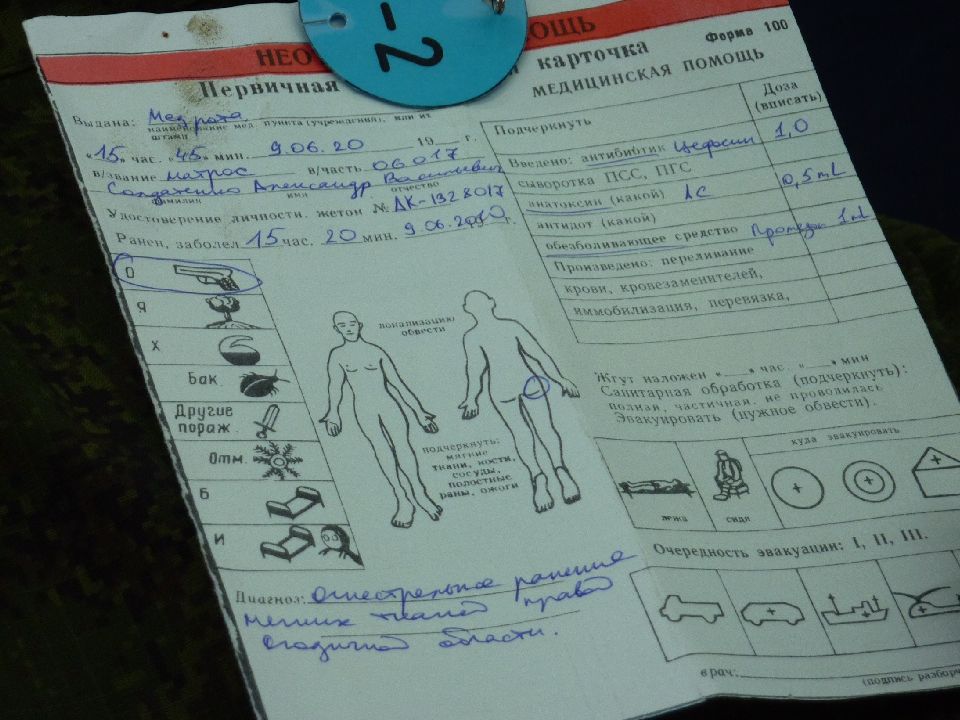 -2
НЕО ОЩЬ
Форма 100
Первичная карточка
МЕДИЦИНСКАЯ ПОМОЩЬ
Выдана: Мед рота
наименование мед. пункта (учреждения), или их
штамп
"15" час. "45" мин. 9.06.20 19 г.
в/звание матрос в/часть 06017
Солдатенко Александр Васильевич
фамилия имя отчество
Удостоверение личности. жетон № АК-1328017
Ранен, заболел 15 час. 20 мин. 9.06.2010 г.
О
Я
Х
Бак
Другие
пораж.
Отм.
Б
И
локализацию
обвести
подчеркнуть:
мягкие
ткани, кости,
сосуды,
полостные
раны, ожоги
Диагноз: Огнестрельное ранение
мягких тканей правой
ягодичной области.
Подчеркнуть
Доза
(вписать)
Введено: антибиотик 1,0
сыворотка ПСС, ПГС
анатоксин (какой) АС 0,5 mL
антидот (какой)
обезболивающее средство 1 mL
Произведено: переливание
крови, кровезаменителей,
иммобилизация, перевязка,
Жгут наложен "___" час. "___" мин
Санитарная обработка (подчеркнуть):
полная, частичная. не проводилась
Эвакуировать (нужное обвести).
куда эвакуировать
лежа
сидя
Очередность эвакуации: I, II, III.
врач:
(подпись разборч